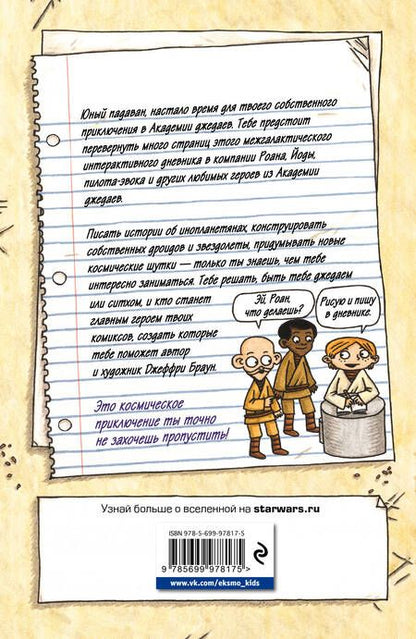 Юный падаван, настало время для твоего собственного
приключения в Академии джедаев. Тебе предстоит
перевернуть много страниц этого межгалактического
интерактивного дневника в компании Роана, Йоды,
пилота-эвока и других любимых героев из Академии
джедаев.
Писать истории об инопланетянах, конструировать
собственных дроидов и звездолеты, придумывать новые
космические шутки — только ты знаешь, чем тебе
интересно заниматься. Тебе решать, быть тебе джедаем
или ситхом, и кто станет
главным героем твоих
комиксов, создать которые
тебе поможет автор
и художник Джеффри Браун.
Эй, Роан,
что делаешь?
Рисую и пишу
в дневнике.
Это космическое
приключение ты точно
не захочешь пропустить!
Узнай больше о вселенной на starwars.ru
ISBN 978-5-699-97817-5
9 785699 978175 >
www.vk.com/eksmo_kids